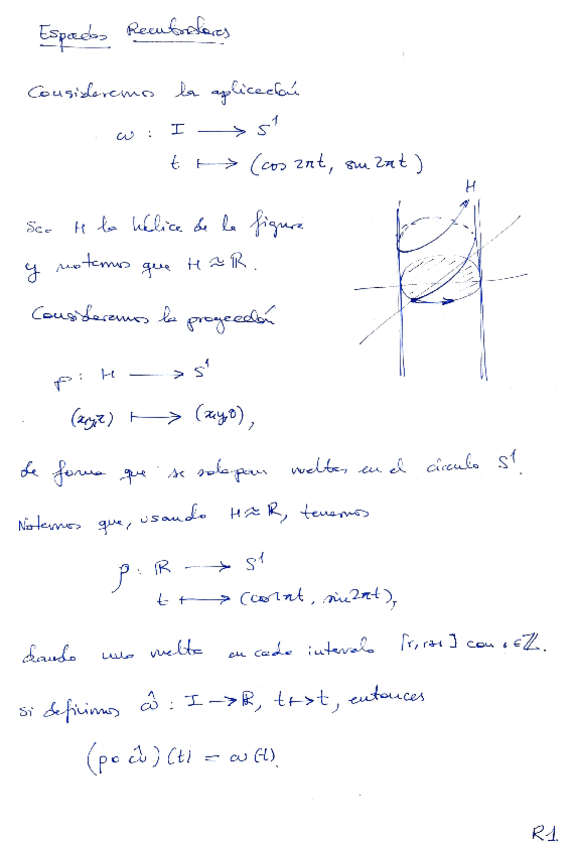 Espacios Recubridores
Consideremos la aplicación
ω : I ⟶ S¹
t ⟼ (cos 2πt, sin 2πt)
H
Sea H la hélice de la figura
y notemos que H ≈ ℝ.
Consideremos la proyección
p : H ⟶ S¹
(x,y,z) ⟼ (x,y,0),
de forma que se solapan vueltas en el círculo S¹.
Notemos que, usando H ≈ ℝ, tenemos
p : ℝ ⟶ S¹
t ⟼ (cos 2πt, sin 2πt),
dando una vuelta en cada intervalo [r, r+1] con r ∈ ℤ.
Si definimos ω̂ : I → ℝ, t ↦ t, entonces
(p ∘ ω̂)(t) = ω(t).
R1